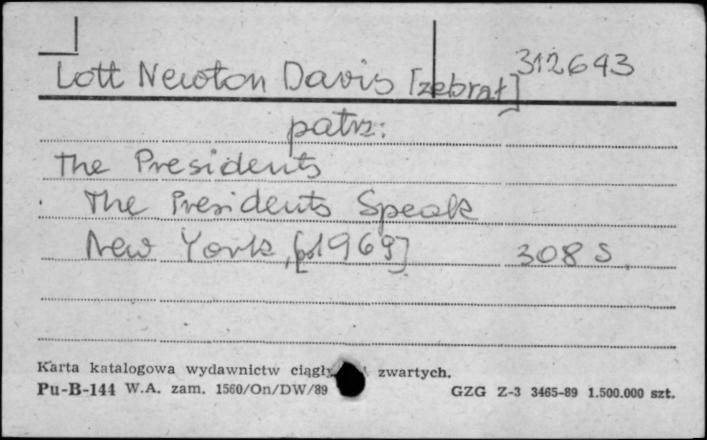 312643
Lott Newton Davis [zebrał]
patrz:
The Presidents
The Presidents Speak
New York, [1969] 308 S.
Karta katalogowa wydawnictw zwartych.
Pu-B-144 W.A. zam. 1560/On/DW/89 GZG Z-3 3465-89 1.500.000 szt.